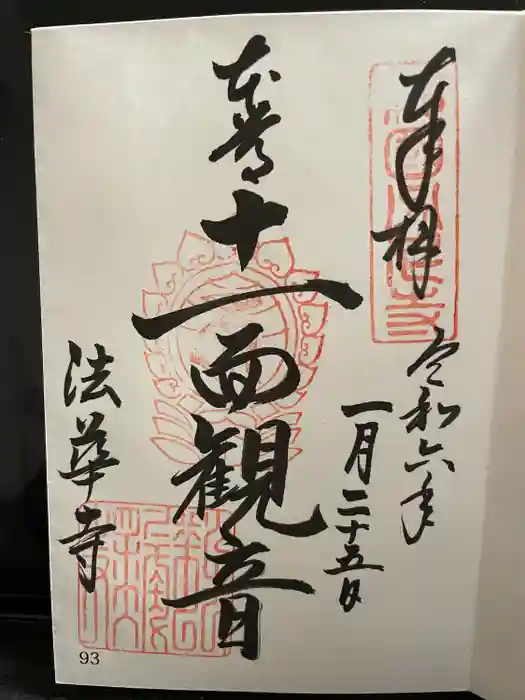 奉拝
令和六年
一月二十五日
本尊十一面観音
法華寺
93